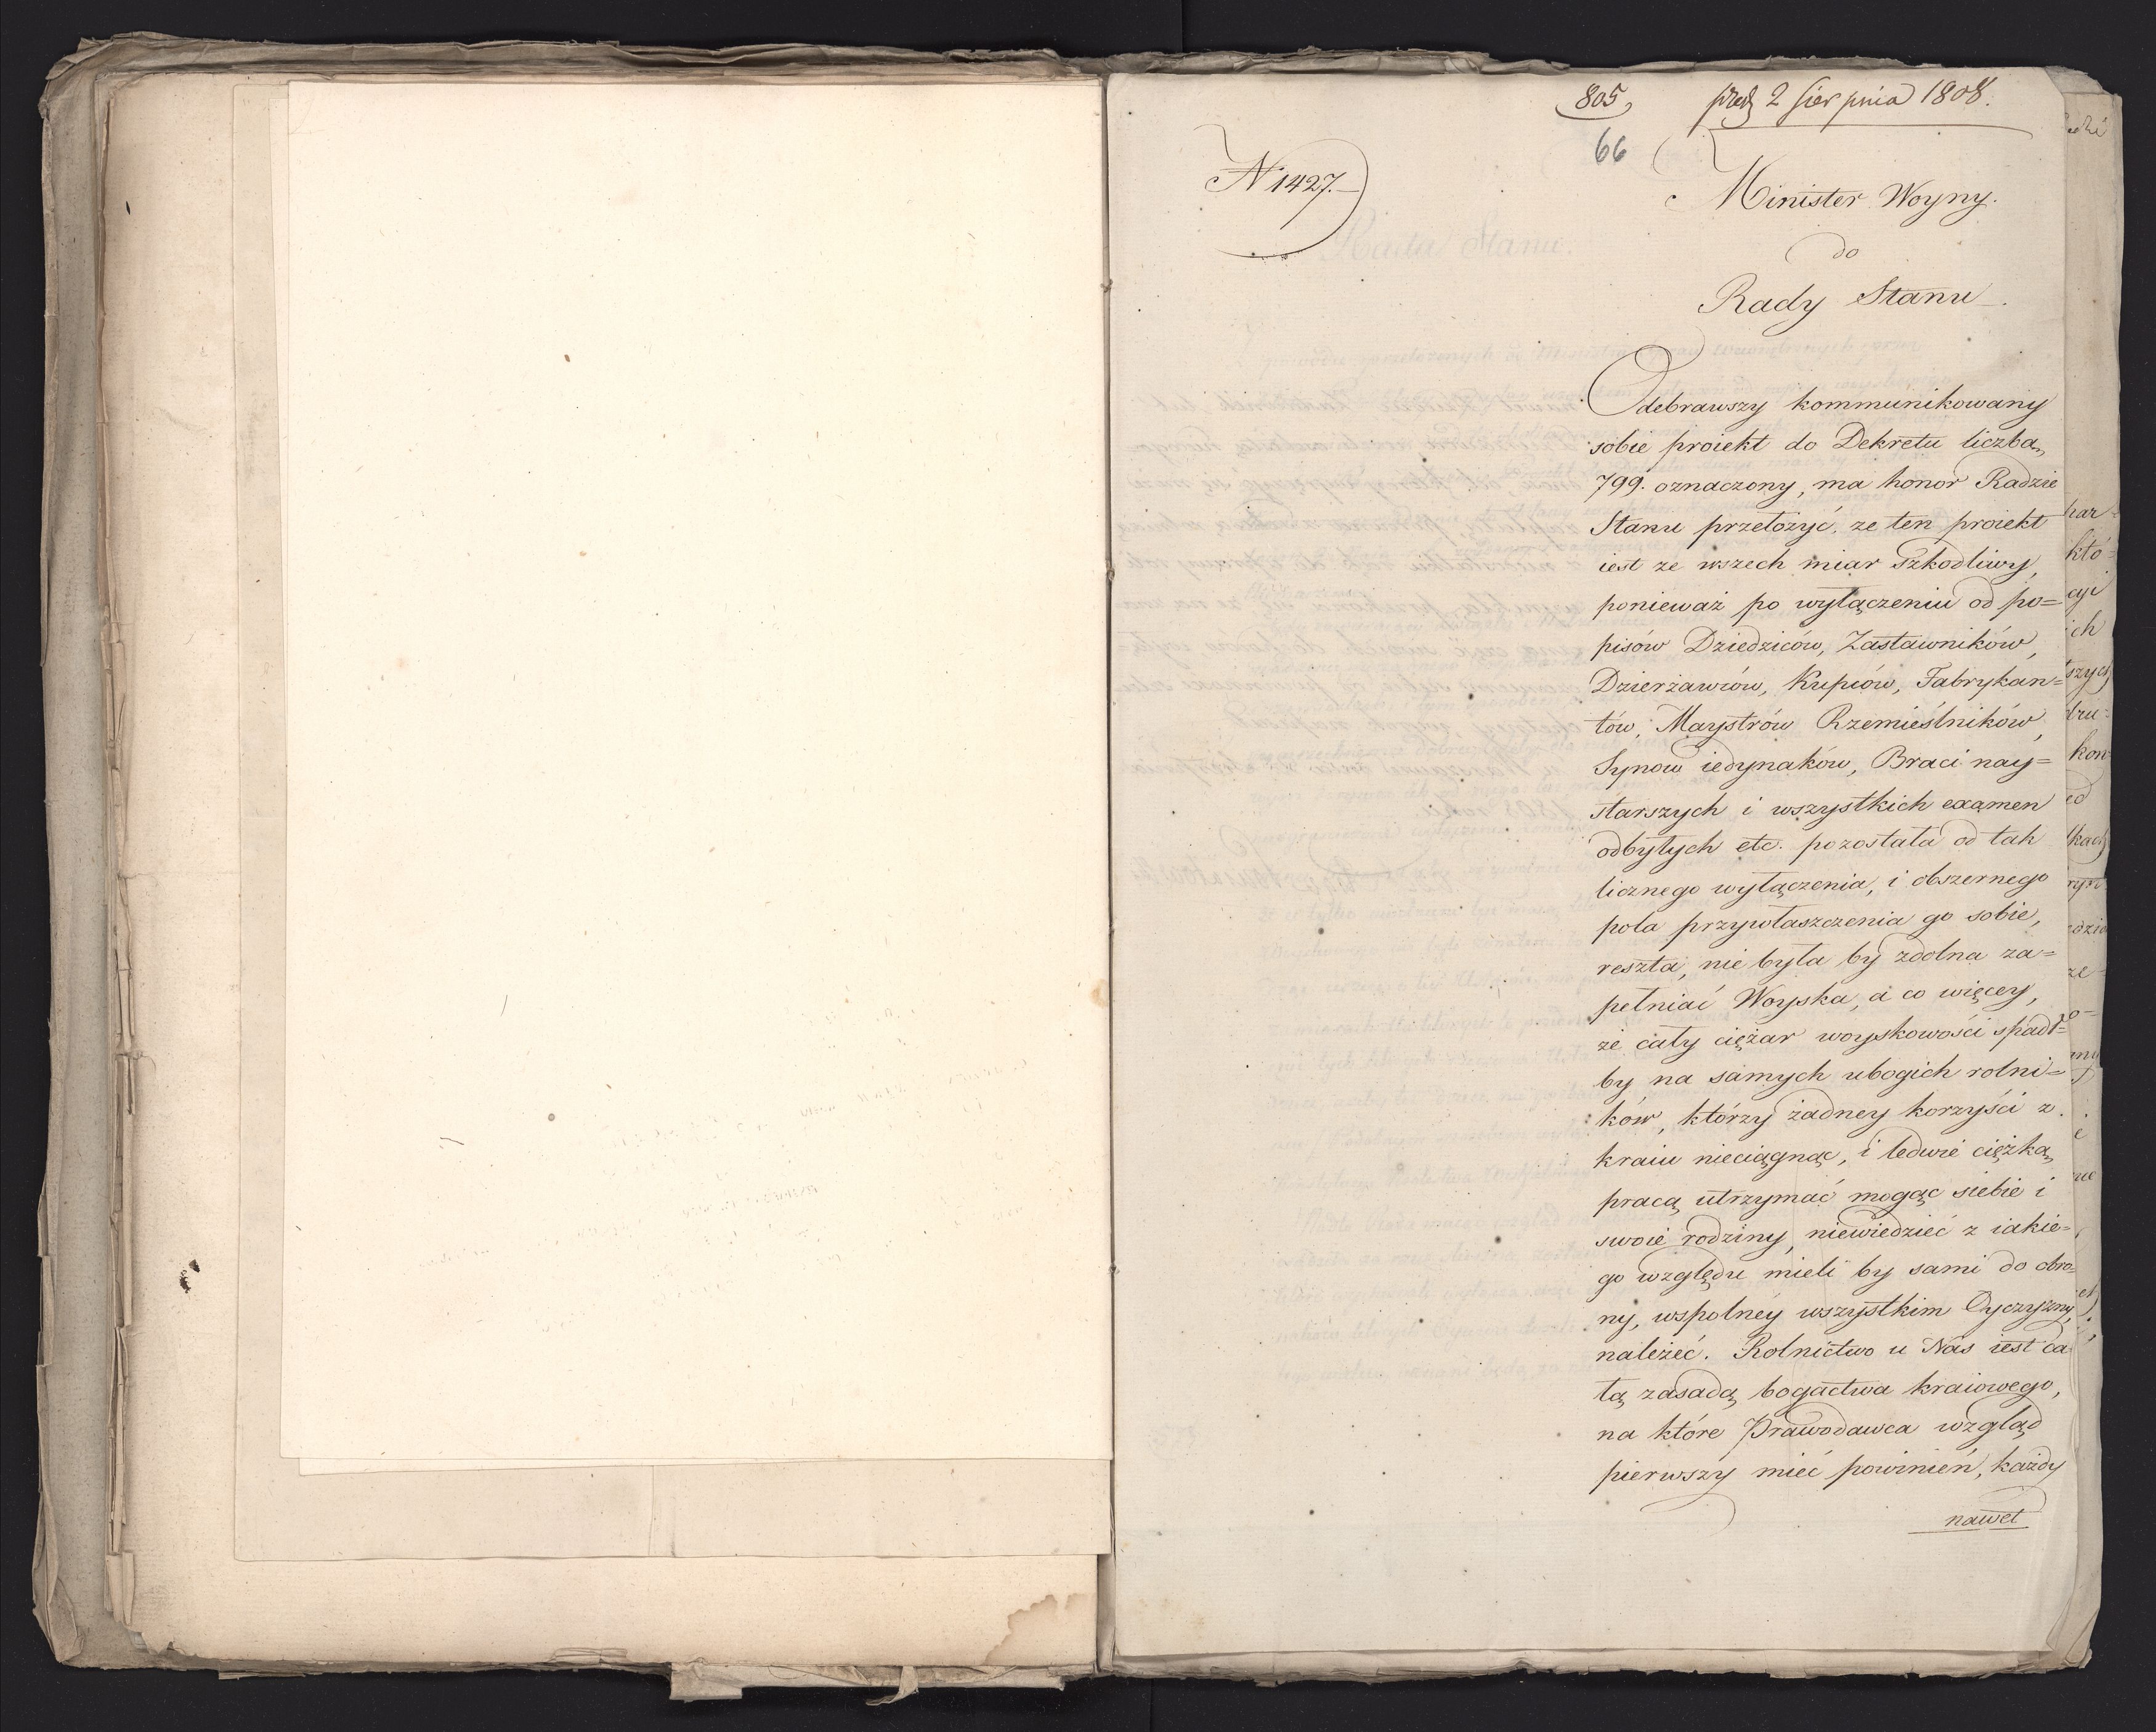 805, 2 Sierpnia 1808.
66
N 1427.
Minister Woyny.
do
Rady Stanu.
Odebrawszy kommunikowany
sobie proiekt do Dekretu liczbą
799. oznaczony, ma honor Radzie
Stanu przełożyć, ze ten proiekt
iest ze wszech miar szkodliwy,
ponieważ po wyłączeniu od po=
pisów Dziedziców, Zastawników,
Dzierżawców, Kupców, Fabrykan=
tów, Maystrów Rzemieślników,
Synow iedynaków, Braci nay=
starszych i wszystkich examen
odbyłych etc. pozostała od tak
licznego wyłączenia, i obszernego
pola przywłaszczenia go sobie,
reszta, nie była by zdolna za=
pełniać Woyska, a co więcey,
że cały ciężar woyskowości spadł=
by na samych ubogich rolni=
ków, którzy żadney korzyści z
kraiu nieciągnąc, i ledwie ciężką
pracą utrzymać mogąc siebie i
swoie rodziny, niewiedzieć z iakie=
go względu mieli by sami do obro=
ny, wspolney wszystkim Oyczyzny,
należeć. Rolnictwo u Nas iest ca
łą zasadą bogactwa kraiowego,
na które Prawodawca wzgląd
pierwszy mieć powinień, każdy
nawet